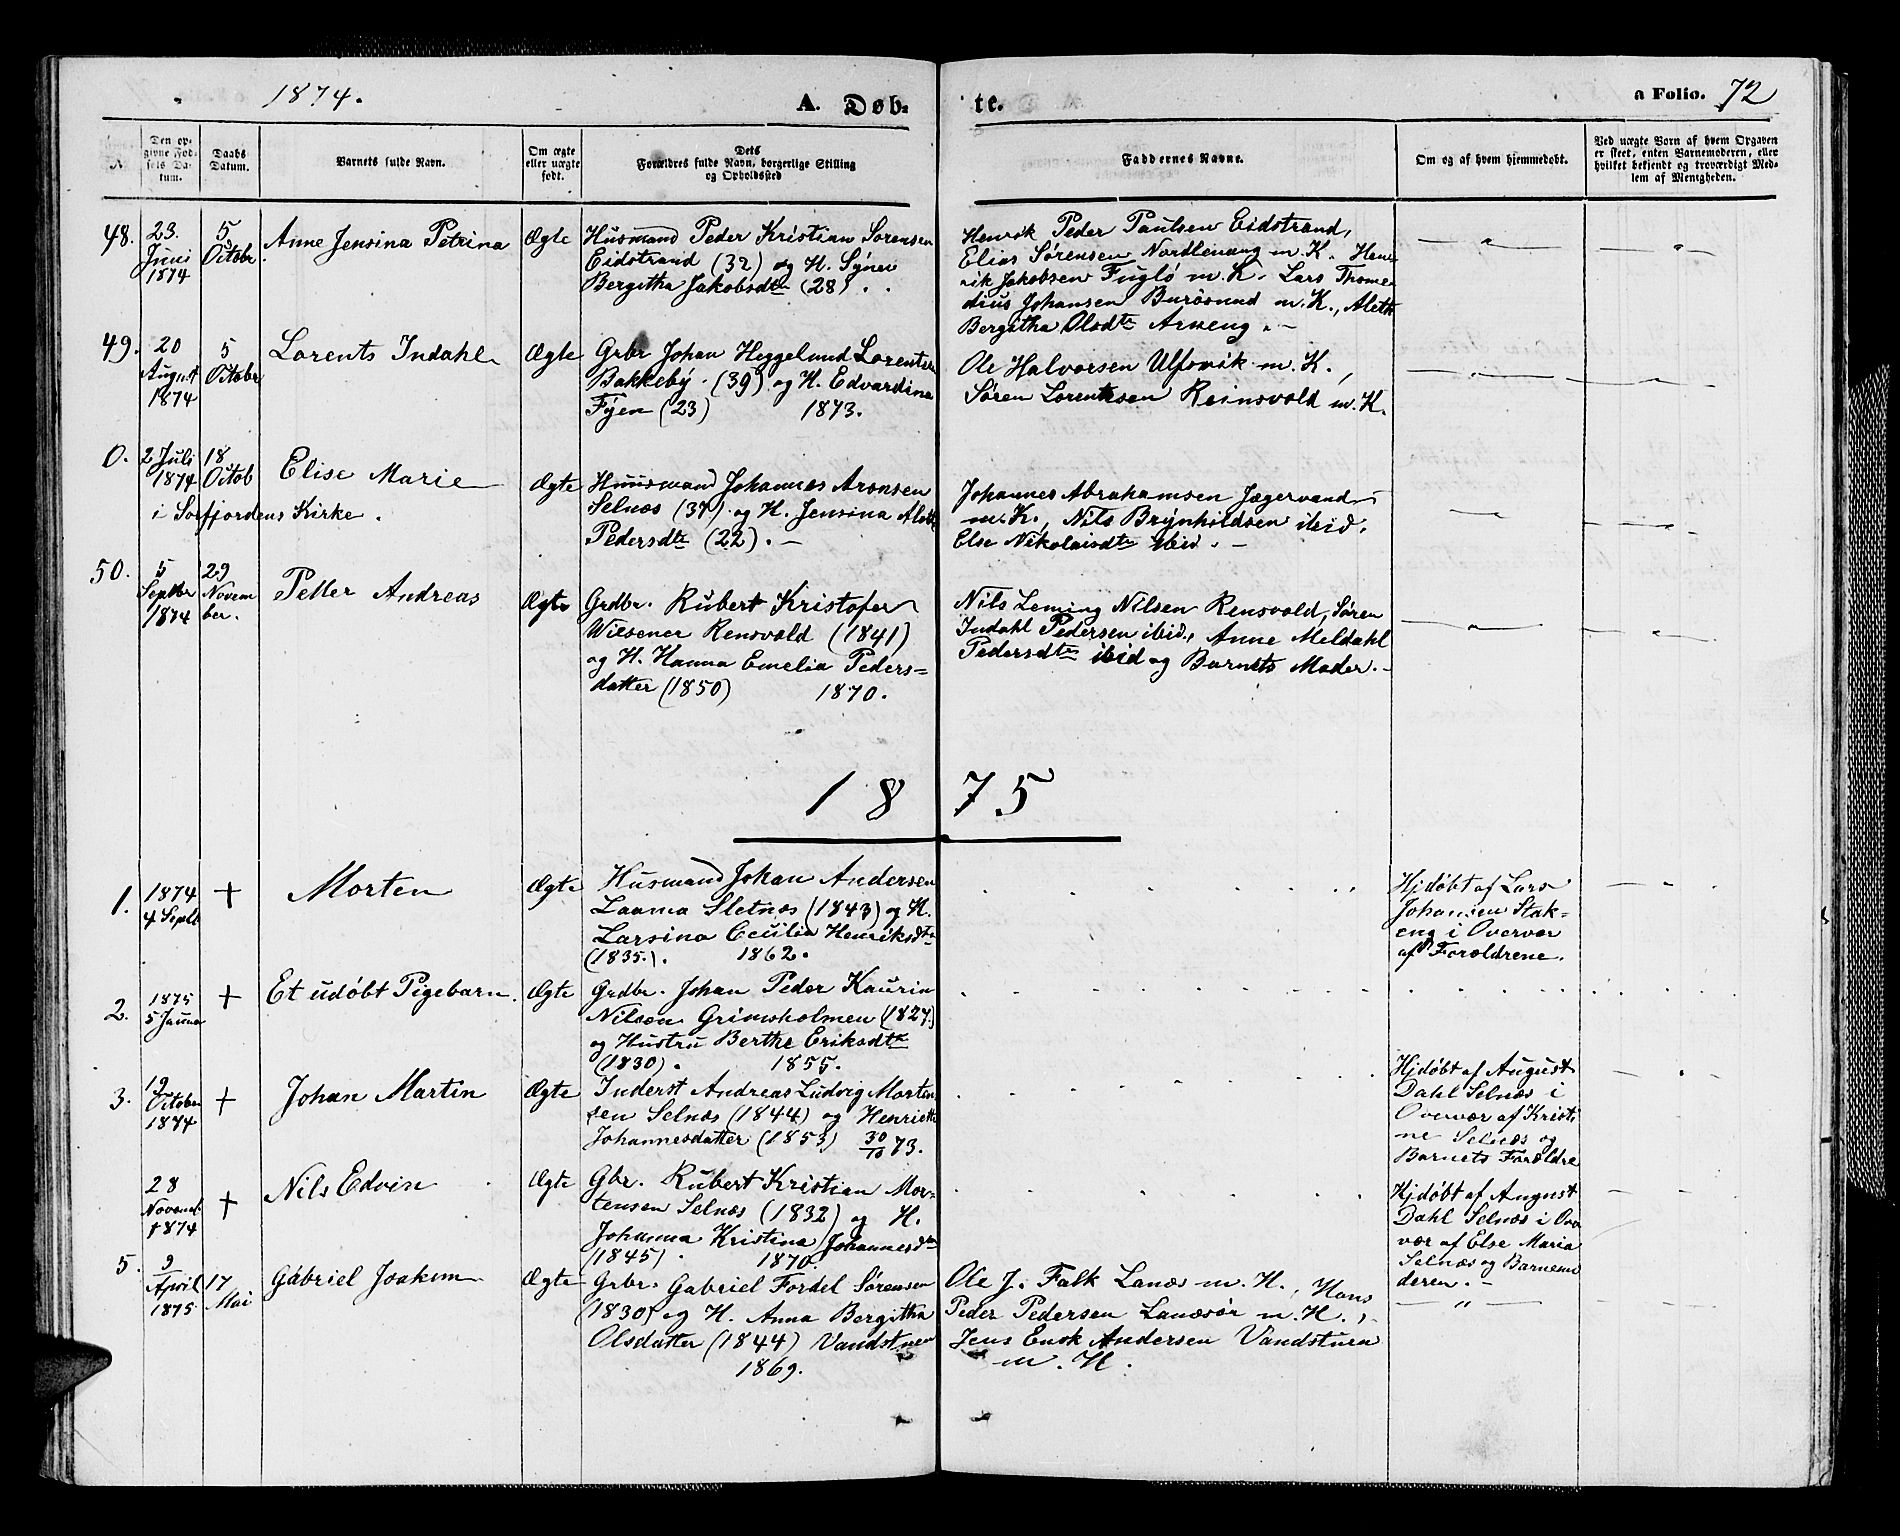 1874.
A. Døb-
te.
a Folio. 72
N.
Den op-
givne Fød-
sels Da-
tum.
Daabs
Datum.
Barnets fulde Navn.
Om ægte
eller uægte
født.
Dets
Forældres fulde Navn, borgerlige Stilling
og Opholdssted
Faddernes Navne.
Om og af hvem hjemmedøbt.
Ved uægte Børn af hvem Opgaven
er skeet, enten Barnemoderen, eller
hvilket bekjendt og troværdigt Med-
lem af Menigheden.
48.
23.
Juni
1874
5
Octobr
Anne Jensina Petrina
Ægte
Husmand Peder Kristian Sørensen
Eidstrand (32) og H.
Bergitha Jakobsdtr (28).
Henrik Peder Paulsen Eidstrand,
Elias Sørensen Nordlenang m. K. Hen-
rik Jakobsen Fuglø m. K. Lars Thome-
dius Johansen Burøsund m. K., Aleth
Bergitha Olsdtr
49.
20
August
1874
5
Octobr
Lorents Indahl
Ægte
Grbr Johan Heggelund Lorentsen
Bakkeby. (39) og H. Edvardina
Fyen (23) 1873.
Ole Halvorsen Ulfsvik m. K.,
Søren Lorentsen Reinsvold m. K.
0.
2 Juli
1874
18
Octob
Elise Marie
i Sørfjordens Kirke.
Ægte
Husmand Johannes Aronsen
Selnæs (37) og H. Jensina Aleth
Pedersdtr (22). -
Johannes Abrahamsen Jægervand
m. K., Nils Brynhildsen ibid,
Else Nikolaisdtr ibid. -
50.
5
Septbr
1874
29
Novem
ber.
Peder Andreas
Ægte
Grdbr. Rubert Kristofer
Wiesener Rensvold (1841)
og H. Hanna Emelia Peders-
datter (1850) 1870.
Nils Leming Nilsen Rensvold, Søren
Indahl Pedersen ibid., Anne Meldahl
Pedersdtr ibid og Barnets Moder. -
1875
1.
1874
4 Septb
+
Morten
Ægte
Husmand Johan Andersen
Laama Sletnæs (1843) og H.
Larsina Cecilia Henriksdtr
(1835.). 1862.
Hjdøbt af Lars
Johansen Stak-
eng i Overvær
af Forældrene.
2.
1875
5 Janua
+
Et udøbt Pigebarn.
Ægte
Grdbr. Johan Peder Kaurin
Nilsen Grimsholmen (1827)
og Hustru Berthe Eriksdtr
(1830). 1855.
3.
19
October
1874
+
Johan Martin
Ægte
Inderst Andreas Ludvig Morten
sen Selnæs (1844) og Henriette
Johannesdatter (1853) 30/10 73.
Hjdøbt af August
Dahl Selnæs i
Overvær af Kristi
ne Selnæs og
Barnets Forældre
28
Novemb
1874
+
Nils Edvin
Ægte
Gbr. Rubert Kristian Mor-
tensen Selnæs (1832) og H.
Johanna Kristina Johannesdtr
(1845). 1870.
Hjdøbt af August
Dahl Selnæs i Over
vær af Else Maria
Selnæs og Barnemo
deren. -
5.
9
April
1875
17
Mai
Gabriel Joakim
Ægte
Grbr. Gabriel Fordel Sørensen
(1830) og H. Anna Bergitha
Olsdatter (1844) Vandstuen
1869.
Ole J. Falk Lanæs m. H., Hans
Peder Pedersen Lanæsør m. H.,
Jens Enok Andersen Vandstuen
m. H.